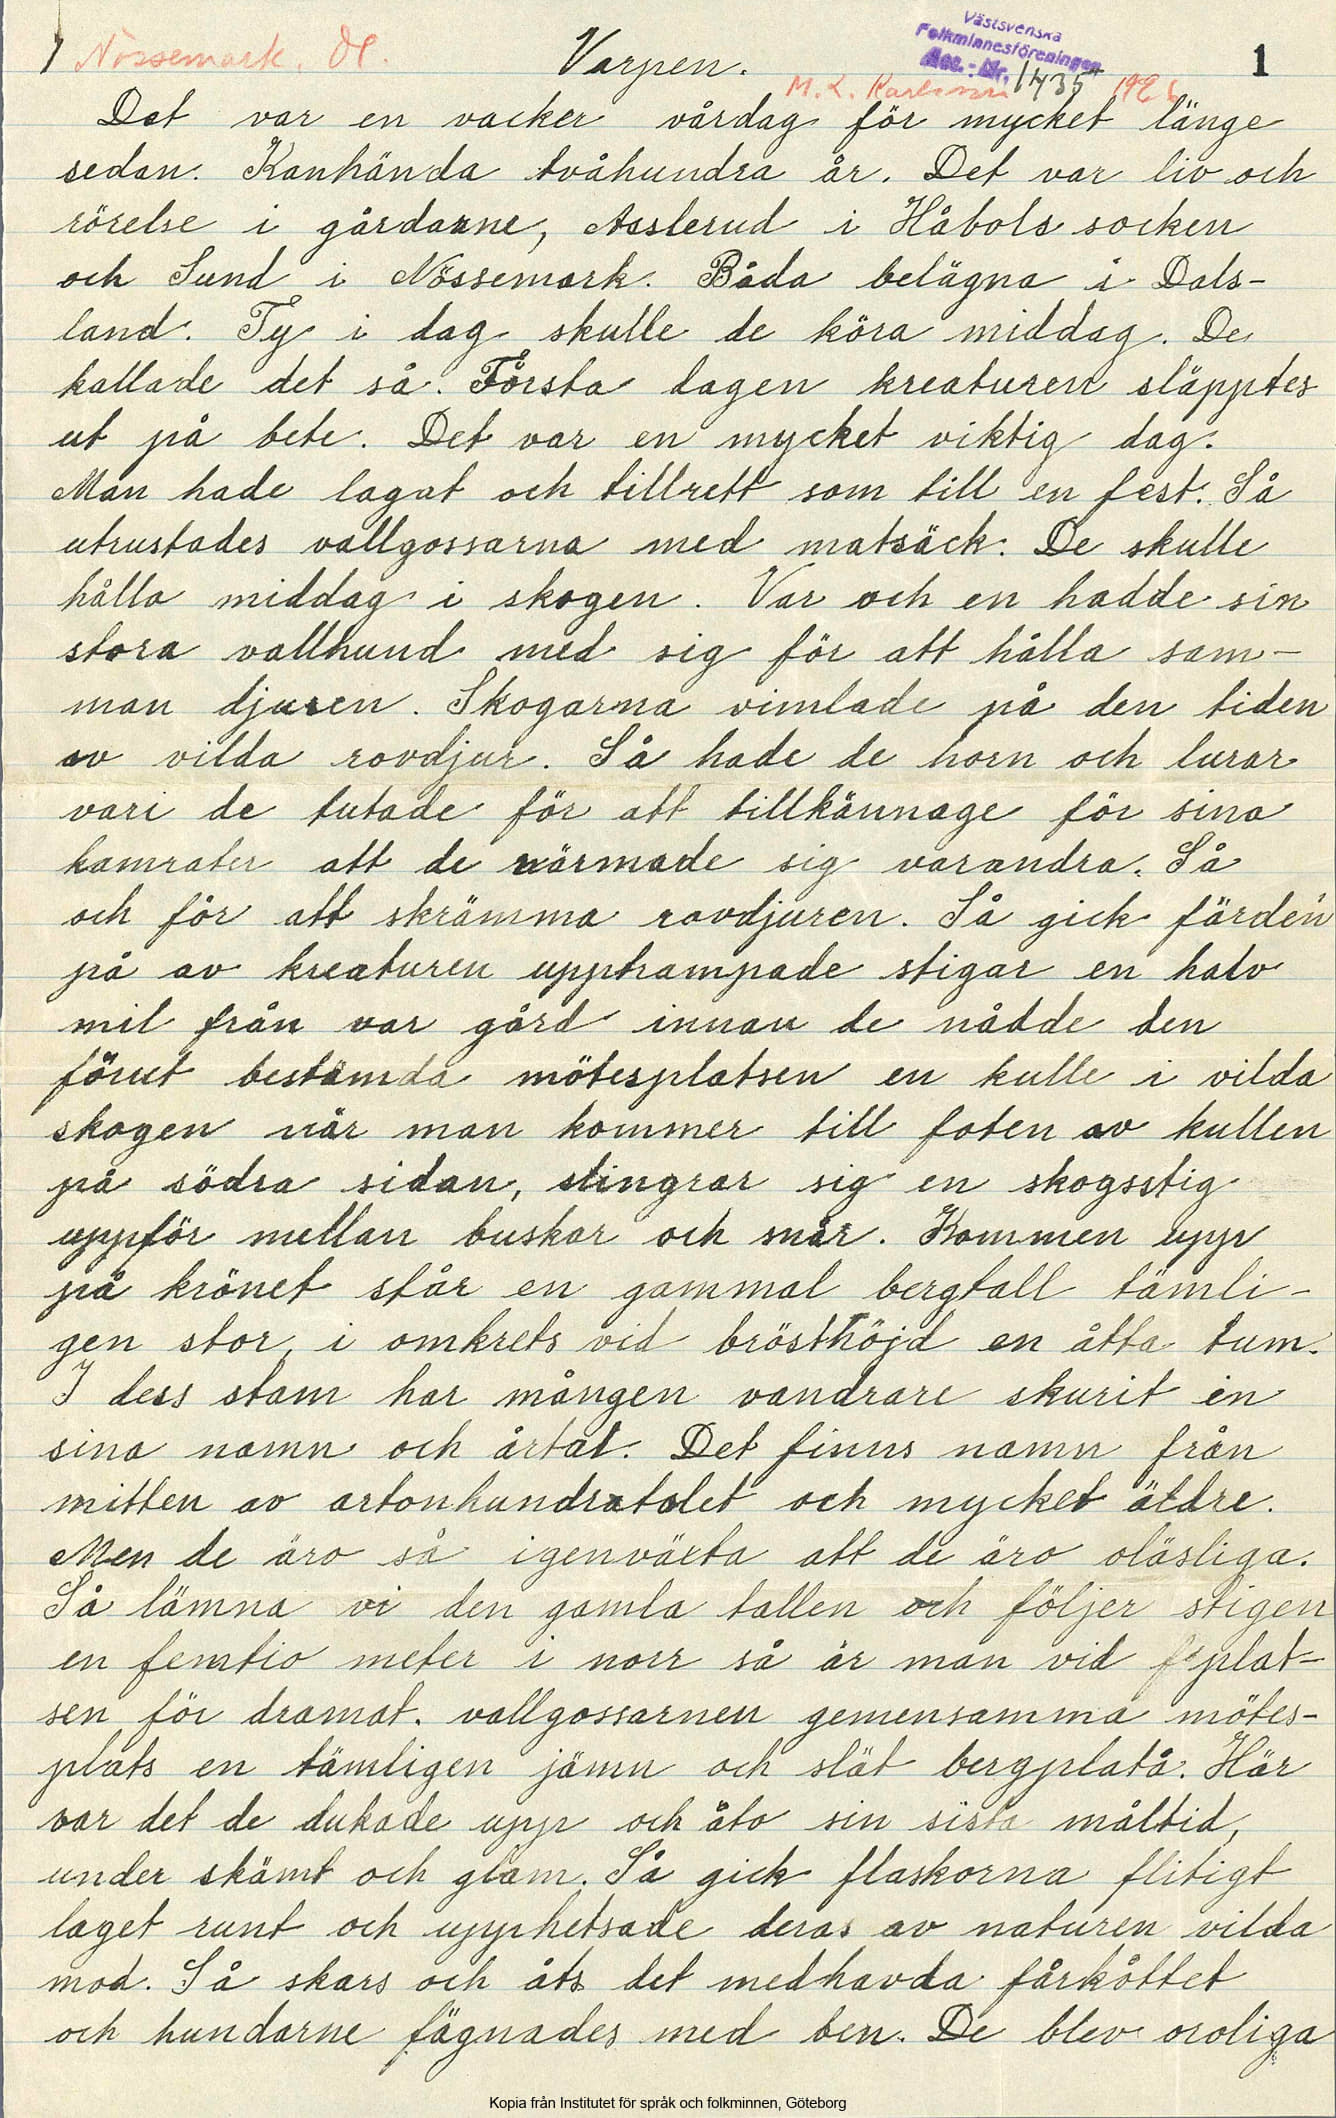 1 Nössemark. Dl.
Varpen.
Västsvenska
Folkminnesföreningen
Acc.-Nr. 1435
1
M. L. Karlsson 1926
Det var en vacker vårdag för mycket länge
sedan. Kanhända tvåhundra år. Det var liv och
rörelse i gårdarne, Asslerud i Håbols socken
och Sund i Nössemark. Båda belägna i Dals-
land. Ty i dag skulle de köra middag. De
kallade det så. Första dagen kreaturen släpptes
ut på bete. Det var en mycket viktig dag.
Man hade lagat och tillrett som till en fest. Så
utrustades vallgossarna med matsäck. De skulle
hålla middag i skogen. Var och en hadde sin
stora vallhund med sig för att hålla sam-
man djuren. Skogarna vimlade på den tiden
av vilda rovdjur. Så hade de horn och lurar
vari de tutade för att tillkännage för sina
kamrater att de närmade sig varandra. Så
och för att skrämma rovdjuren. Så gick färden
på av kreaturen upptrampade stigar en halv
mil från var gård innan de nådde den
förut bestämda mötesplatsen en kulle i vilda
skogen når man kommer till foten av kullen
på södra sidan, slingrar sig en skogsstig
uppför mellan buskar och snår. Kommen upp
på krönet står en gammal bergtall tämli-
gen stor, i omkrets vid brösthöjd en åtta tum.
I dess stam har mången vandrare skurit in
sina namn och årtal. Det finns namn från
mitten av artonhundratalet och mycket äldre.
Men de äro så igenväxta att de äro oläsliga.
Så lämna vi den gamla tallen och följer stigen
en femtio meter i norr så är man vid plat-
sen för dramat. vallgossarnen gemensamma mötes-
plats en tämligen jämn och slät bergplatå. Här
var det de dukade upp och åto sin sista måltid,
under skämt och glam. Så gick flaskorna flitigt
laget runt och upphetsade deras av naturen vilda
mod. Så skars och åts det medhavda fårköttet
och hundarne fägnades med ben. De blev oroliga
Kopia från Institutet för språk och folkminnen, Göteborg